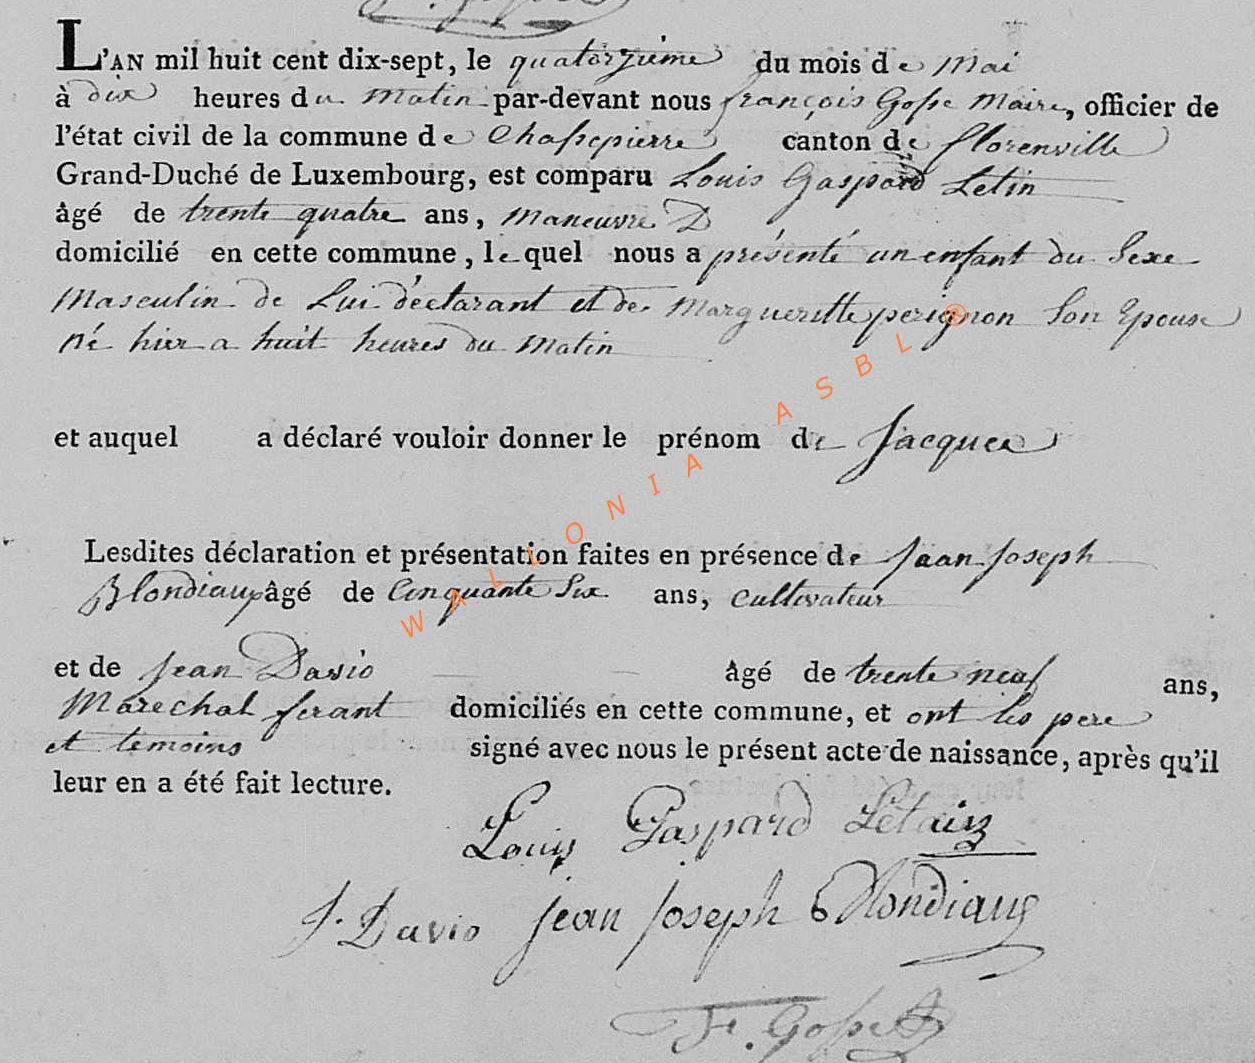 L'AN mil huit cent dix-sept, le quatorzieme du mois de Mai
à dix heures du Matin par-devant nous françois Gosse Maire, officier de
l'état civil de la commune de Chassepierre canton de florenville
Grand-Duché de Luxembourg, est comparu Louis Gaspard Letin
âgé de trente quatre ans, maneuvre D
domicilié en cette commune, lequel nous a présenté un enfant du Sexe
Masculin de Lui déclarant et de Margueritte perignon Son Epouse
Né hier a huit heures du Matin
et auquel a déclaré vouloir donner le prénom de Jacques
Lesdites déclaration et présentation faites en présence de Jean Joseph
Blondiaux âgé de Cinquante Six ans, cultivateur
et de Jean Davio âgé de trente neuf ans,
Marechal ferant domiciliés en cette commune, et ont les pere
et temoins signé avec nous le présent acte de naissance, après qu'il
leur en a été fait lecture.
Louis Gaspard Letain
J. Davio Jean Joseph Blondiaux
F. Gosse
WALLONIA ASBL ®